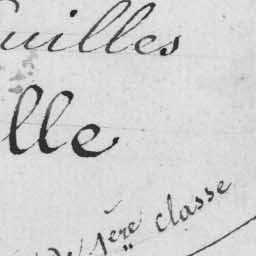 uilles
lle
de 1ère classe